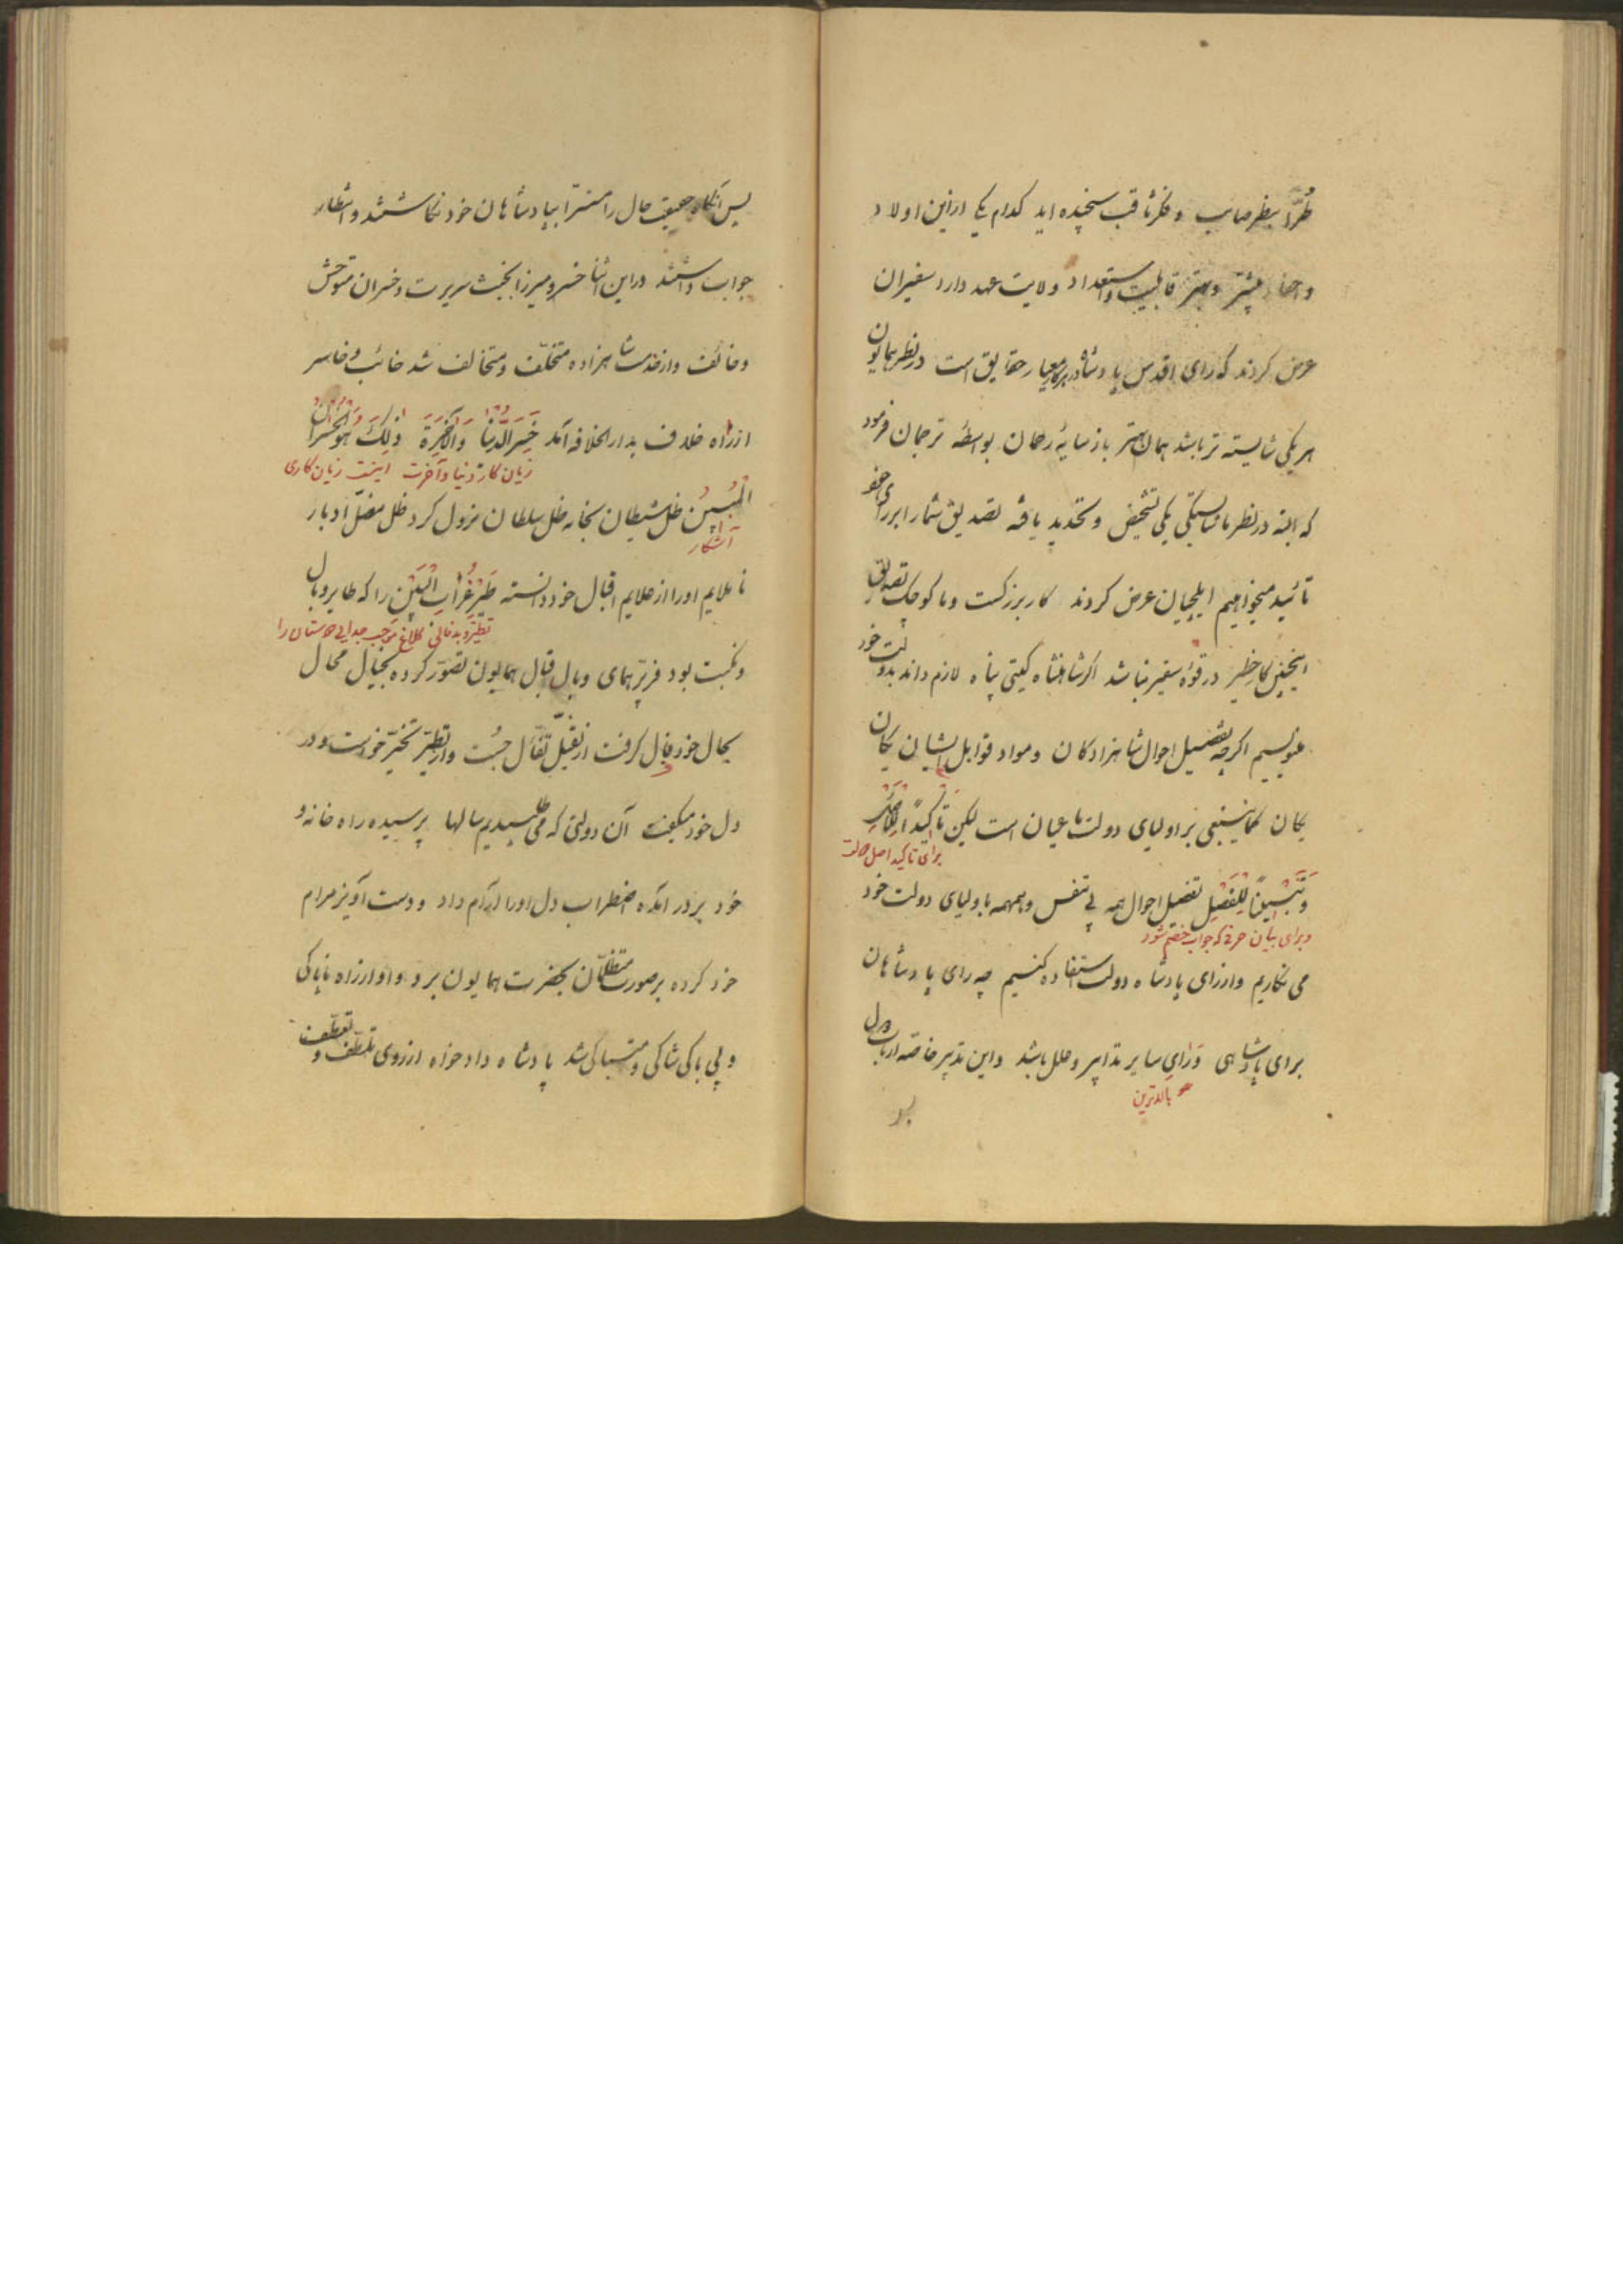 طُرّاً بنظر صایب و فکر ثاقب سنجیده اید کدام یک ازین اولاد
و احفاد بیشتر و بهتر قابلیت و استعداد ولایت عهد دارد سفیران
عرض کردند که رای اقدس پادشاه پرکار معیار حقایق است در نظر همایون
هر یکی شایسته تر باشد همان بهتر باز سایهٔ رحمان بواسطهٔ ترجمان فرمود
که البته در نظر ما شایستگی یکی تشخیص و تحدید یافته تصدیق شما را برای خود
تائید میخواهیم ایلچیان عرض کردند کار بزرگست و ما کوچک تصدیق
اینچنین کار خطیر در قوهٔ سفیر نباشد اگر شاهنشاه گیتی پناه لازم داند بدولت خود
بنویسیم اگرچه تفصیل احوال شاهزادگان و مواد قوابل ایشان یکان
یکان کما ینبغی بر اولیای دولت ما عیان است لیکن تأکیداً للاصل
برای تاکید اصل حالت
و تبییناً للفصل تفصیل احوال همه بی تنفس و همهمه باولیای دولت خود
و برای بیان حرفی که جواب خصم شود
می نگاریم و از رای پادشاه دولت استفاده کنیم چه رای پادشاهان
برای پادشاهی ورای سایر تدابیر و علل باشد و این تدبیر خاصه ارباب دول
بالاترین
پس آنگاه حقیقت حال را مفسّرا بپادشاهان خود نگاشتند و انتظار
جواب داشتند در این اثنا خسرو میرزا بخبث سریرت و خسران متوحش
و خائف و از خدمت شاهزاده متخلّف و متخالف شد خائب و خاسر
از راه خلاف بدار الخلافه آمد خَسِرَ الدُّنیا وَ الآخِرَةَ ذلِکَ هُوَ الخُسرانُ
زیان کار دنیا و آخرت اینست زیان کاری
المُبینُ ظل شیطان بخانه ظل سلطان نزول کرد ظل مضلّ ادبار
آشکار
ناملایم او را از علایم اقبال خود دانسته طَیرَ غُرابِ البَینِ را که طایر وبال
تطیّر و بدفالی کلاغ موجب جدایی دوستان را
و نکبت بود فر پر همای و بال اقبال همایون تصوّر کرده بخیال محال
بحال خود فال گرفت از تقبّل تفأل جُست و از تطیّر تخیّر خواست و در
دل خود میگفت آن دولتی که می طلبیدیم سالها پرسیده راه خانه و
خود بر در آمده اضطراب دل او را آرام داد و دست آویز مرام
خود کرده بر صورت متظلمان بحضرت همایون برد و او از راه ناپاکی
و بی باکی شاکی و متباکی شد پادشاه دادخواه از روی تلطّف و تعطّف